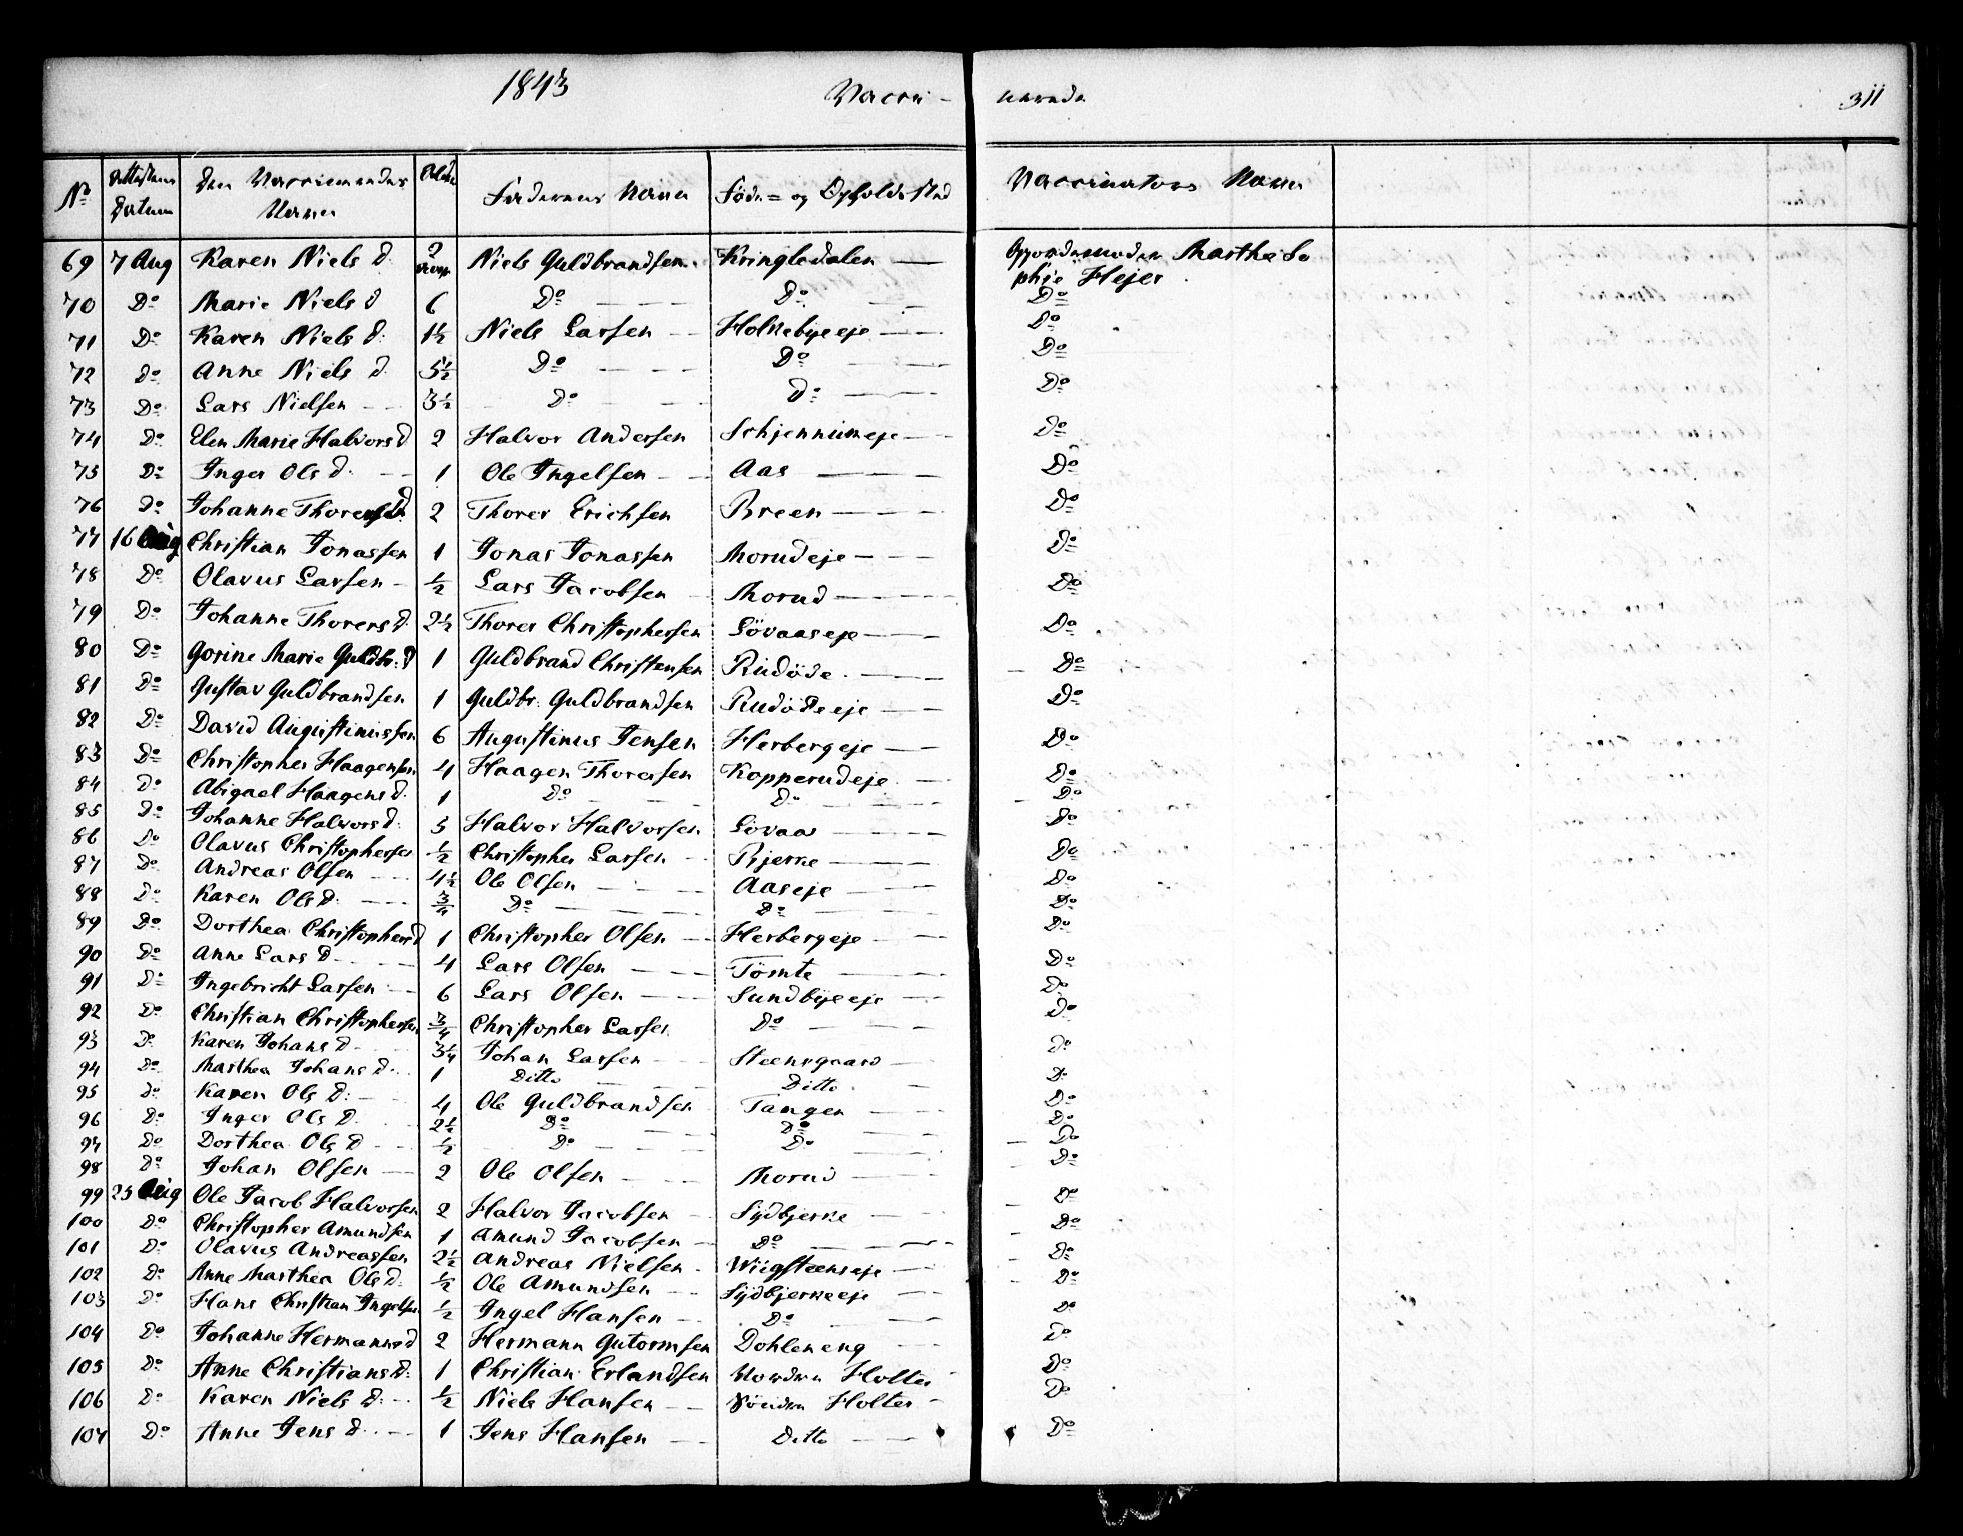 1843 Vacci- nerede 311
No Attestens Datum Den Vaccineredes Navn Alder Faderens Navn Føde= og Opholds Sted Vaccinators Navn
69 7 Aug Karen Niels D. 2 Niels Guldbrandsen Kringledalen Gjordemoder Marthe So
phie Hejer
70 Do Marie Niels D 6 Do Do Do
71 Do Karen Niels D: 1½ Niels Larsen Holnebyeeje Do
72 Do Anne Niels D 5½ Do Do Do
73 Do Lars Nielsen 3½ Do Do Do
74 Do Elen Marie Halvors D 2 Halvor Andersen Schjennumeje Do
75 Do Inger Ols D: 1 Ole Ingelsen Aas Do
76 Do Johanne Thorers D: 2 Thorer Erichsen Breen Do
77 16 Aug Christian Jonassen 1 Jonas Jonassen Morudeje Do
78 Do Olavus Larsen ½ Lars Jacobsen Morud Do
79 Do Johanne Thorers D. 2½ Thorer Christophersen Lövaaseje Do
80 Do Gorine Marie Guldbr: D 1 Guldbrand Christensen Rudöde Do
81 Do Gustav Guldbrandsen 1 Guldbr: Guldbrandsen Rudödeeje Do
82 Do David Augustinussen 6 Augustinus Jensen Herbergeje Do
83 Do Christopher Haagensen 4 Haagen Thorersen Kopperudeje Do
84 Do Abigael Haagens D. 1 Do Do Do
85 Do Johanne Halvors D: 5 Halvor Halvorsen Lövaas Do
86 Do Olavus Christophersen ½ Christopher Larsen Bjerke Do
87 Do Andreas Olsen 4½ Ole Olsen Aaseje Do
88 Do Karen Ols D: ¾ Do Do Do
89 Do Dorthea Christophers D 1 Christopher Olsen Herbergeje Do
90 Do Anne Lars D 4 Lars Olsen Tömte Do
91 Do Ingebricht Larsen 6 Lars Olsen Sundbyeeje Do
92 Do Christian Christophersen ¾ Christopher Larsen Do Do
93 Do Karen Johans D 3¼ Johan Larsen Steensgaard Do
94 Do Marthea Johans D. 1 Ditto Ditto Do
95 Do Karen Ols D: 4 Ole Guldbrandsen Tangen Do
96 Do Inger Ols D. 2½ Do Do Do
97 Do Dorthea Ols D ½ Do Do Do
98 Do Johan Olsen 2 Ole Olsen Morud Do
99 25 Aug Ole Jacob Halvorsen 2 Halvor Jacobsen Sydbjerke Do
100 Do Christopher Amundsen 1 Amund Jacobsen Do Do
101 Do Olavus Andreassen 2½ Andreas Nielsen Wiigsteenseje Do
102 Do Anne Marthea Ols D: ½ Ole Amundsen Sydbjerkeeje Do
103 Do Hans Christian Ingelsen ½ Ingel Hansen Do Do
104 Do Johanne Hermanns D 2 Hermann Gutormsen Dohleneng Do
105 Do Anne Christians D: 1 Christian Erlandsen Nordre Holter Do
106 Do Karen Niels D: ½ Niels Hansen Söndre Holter Do
107 Do Anne Jens D. 1 Jens Hansen Ditto Do